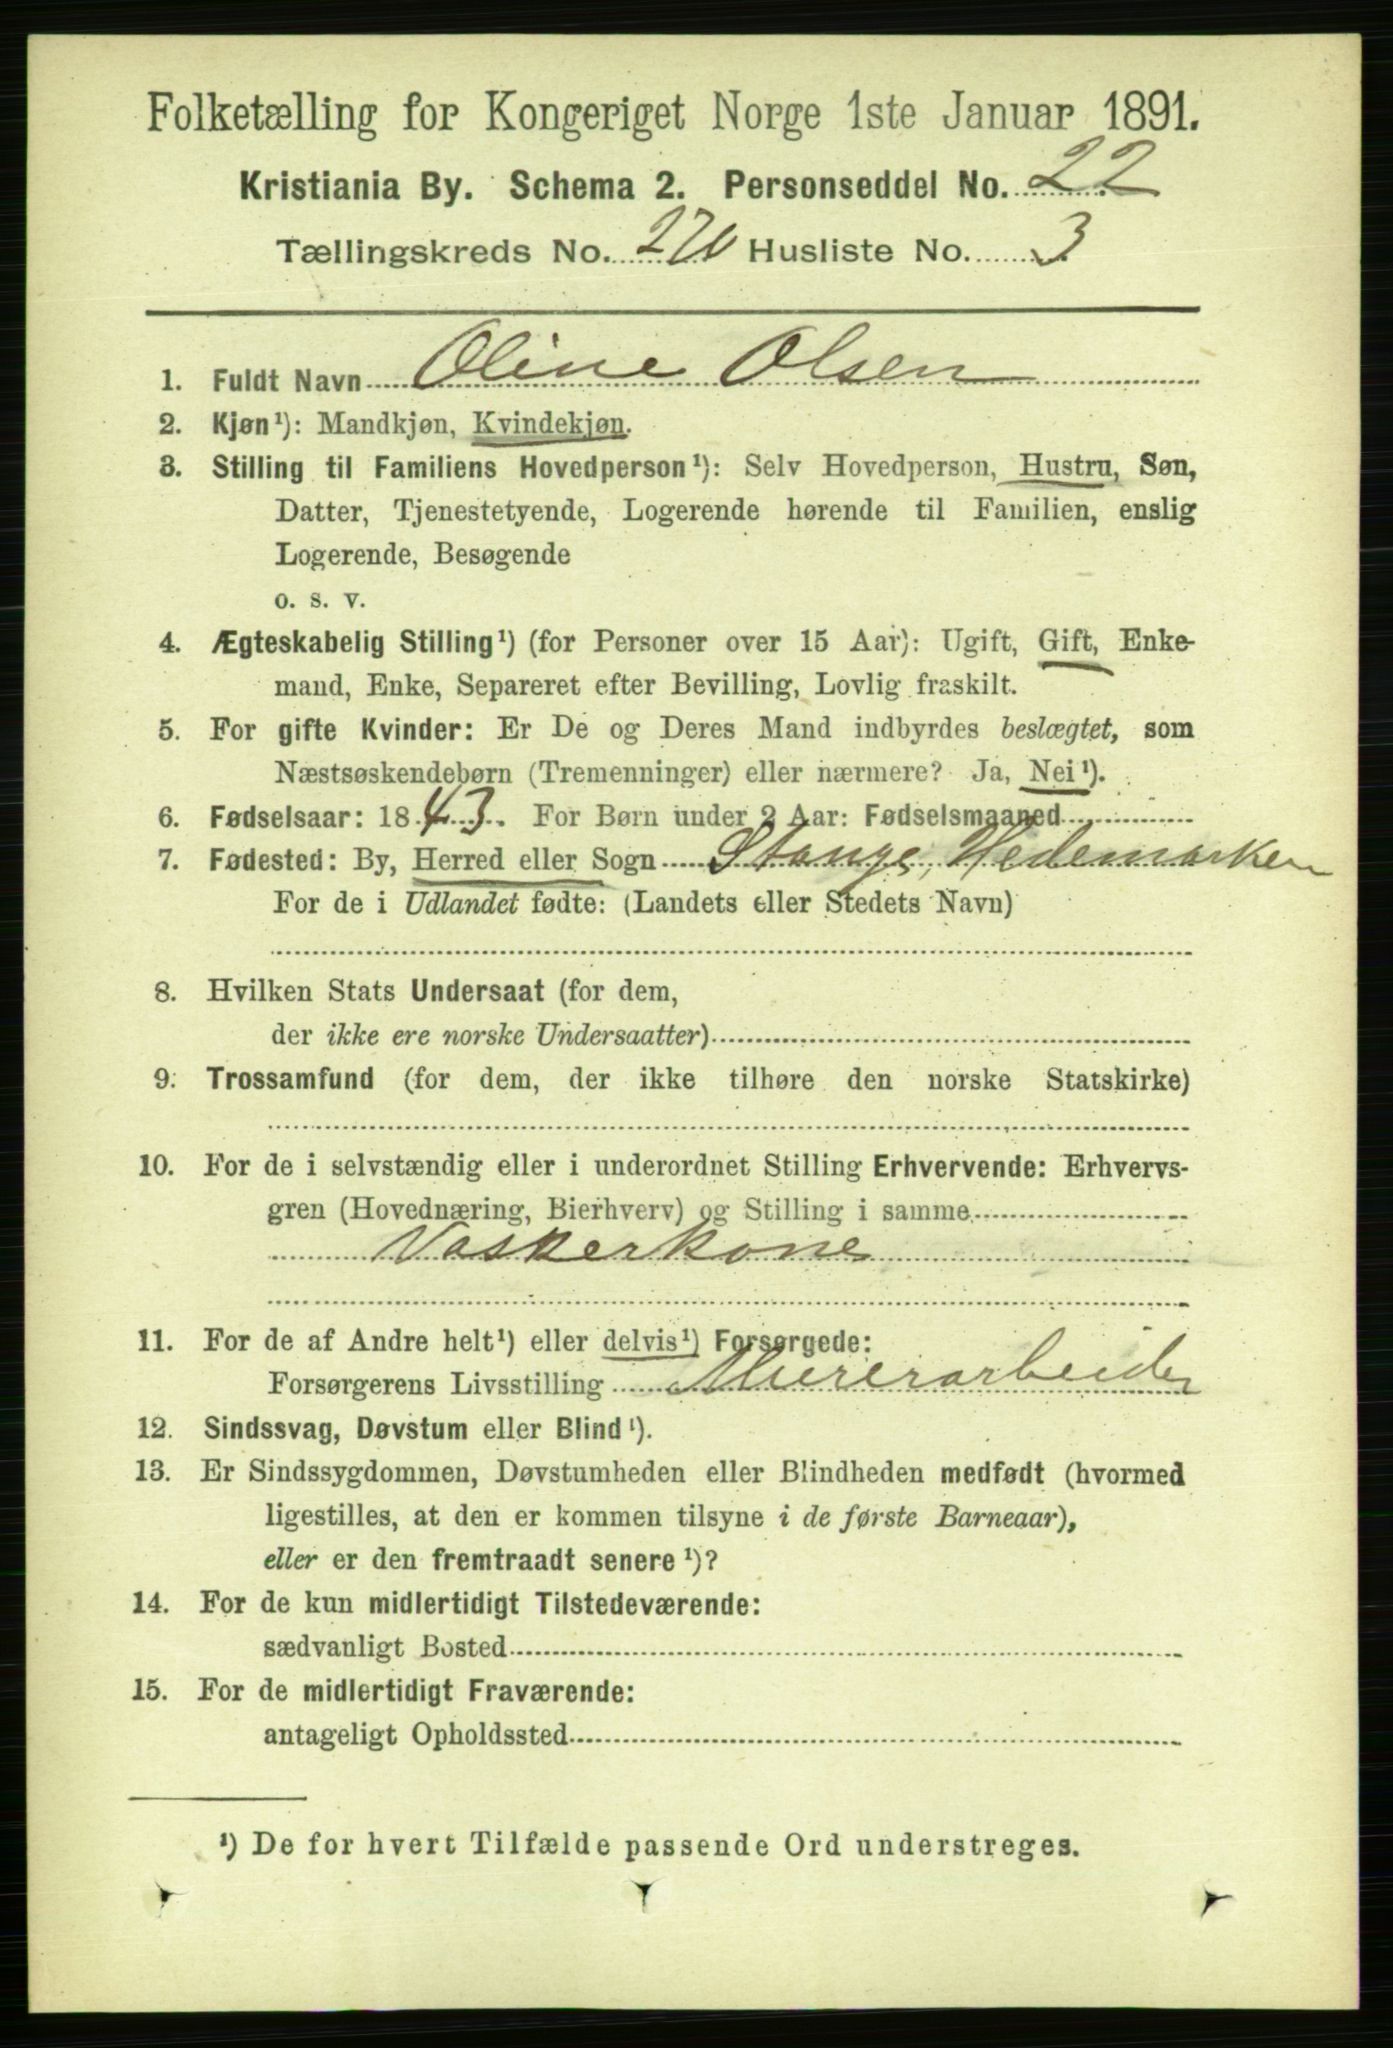 Folketælling for Kongeriget Norge 1ste Januar 1891.
Kristiania By. Schema 2. Personseddel No. 22
Tællingskreds No. 270 Husliste No. 3
1. Fuldt Navn Oline Olsen
2. Kjøn¹): Mandkjøn, Kvindekjøn.
3. Stilling til Familiens Hovedperson¹): Selv Hovedperson, Hustru, Søn,
Datter, Tjenestetyende, Logerende hørende til Familien, enslig
Logerende, Besøgende
o. s. v.
4. Ægteskabelig Stilling¹) (for Personer over 15 Aar): Ugift, Gift, Enke-
mand, Enke, Separeret efter Bevilling, Lovlig fraskilt.
5. For gifte Kvinder: Er De og Deres Mand indbyrdes beslægtet, som
Næstsøskendebørn (Tremenninger) eller nærmere? Ja, Nei¹).
6. Fødselsaar: 1843. For Børn under 2 Aar: Fødselsmaaned
7. Fødested: By, Herred eller Sogn Stange, Hedemarken
For de i Udlandet fødte: (Landets eller Stedets Navn)
8. Hvilken Stats Undersaat (for dem,
der ikke ere norske Undersaatter)
9. Trossamfund (for dem, der ikke tilhøre den norske Statskirke)
10. For de i selvstændig eller i underordnet Stilling Erhvervende: Erhvervs-
gren (Hovednæring, Bierhverv) og Stilling i samme
Vaskerkone
11. For de af Andre helt¹) eller delvis¹) Forsørgede:
Forsørgerens Livsstilling Murerarbeider
12. Sindssvag, Døvstum eller Blind¹).
13. Er Sindssygdommen, Døvstumheden eller Blindheden medfødt (hvormed
ligestilles, at den er kommen tilsyne i de første Barneaar),
eller er den fremtraadt senere¹)?
14. For de kun midlertidigt Tilstedeværende:
sædvanligt Bosted
15. For de midlertidigt Fraværende:
antageligt Opholdssted
¹) De for hvert Tilfælde passende Ord understreges.